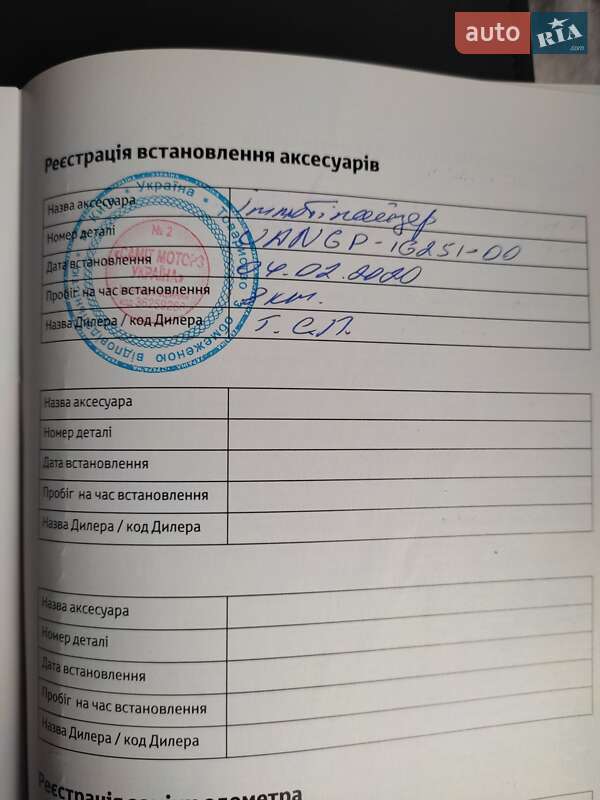 auto RIA .com
Реєстрація встановлення аксесуарів
Назва аксесуара Іммобілайзер
Номер деталі
Дата встановлення 04.02.2020
Пробіг на час встановлення 8 км.
Назва Дилера / код Дилера
Україна
№ 2
«САМІТ МОТОРЗ
УКРАЇНА»
обмеженою відповідальністю
Назва аксесуара
Номер деталі
Дата встановлення
Пробіг на час встановлення
Назва Дилера / код Дилера
Назва аксесуара
Номер деталі
Дата встановлення
Пробіг на час встановлення
Назва Дилера / код Дилера